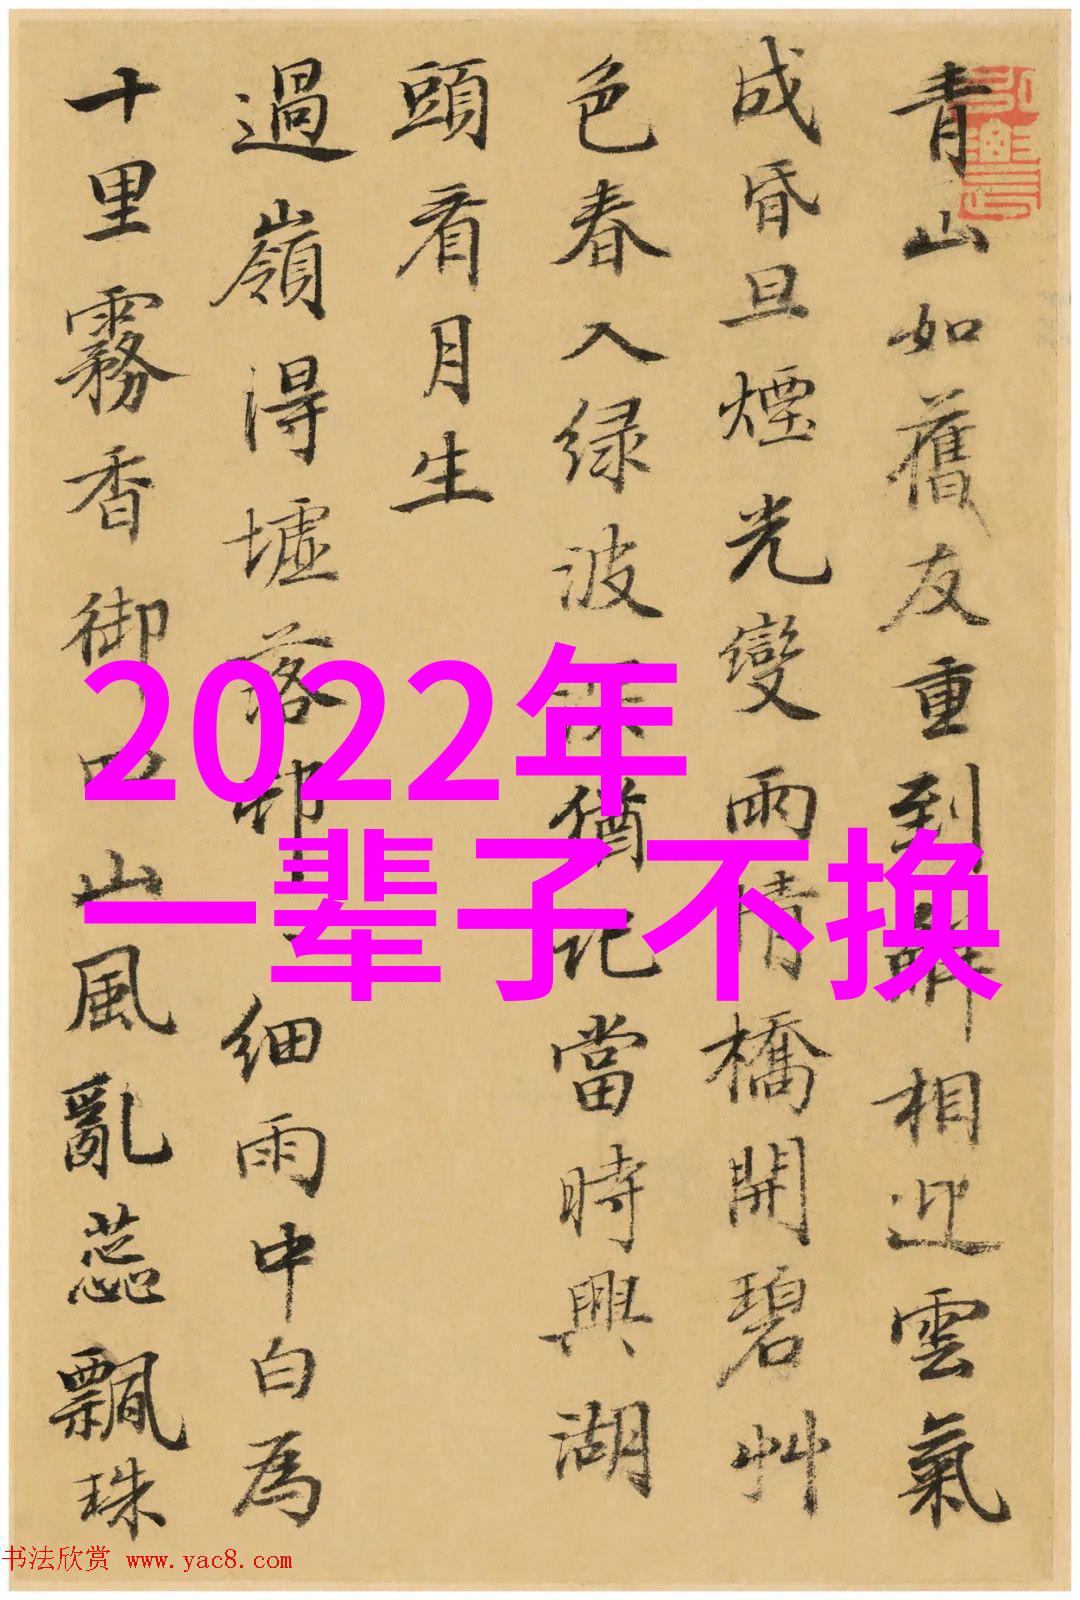 青山如舊友重到解相迎雲氣
成昏旦煙光變雨晴橋開碧艸
色春入緑波猶記當時興湖
頭看月生
過嶺得墟落邨細雨中白為
十里霧香御四山風亂蕊飄珠
2022年
一辈子不换
书法欣赏 www.yac8.com